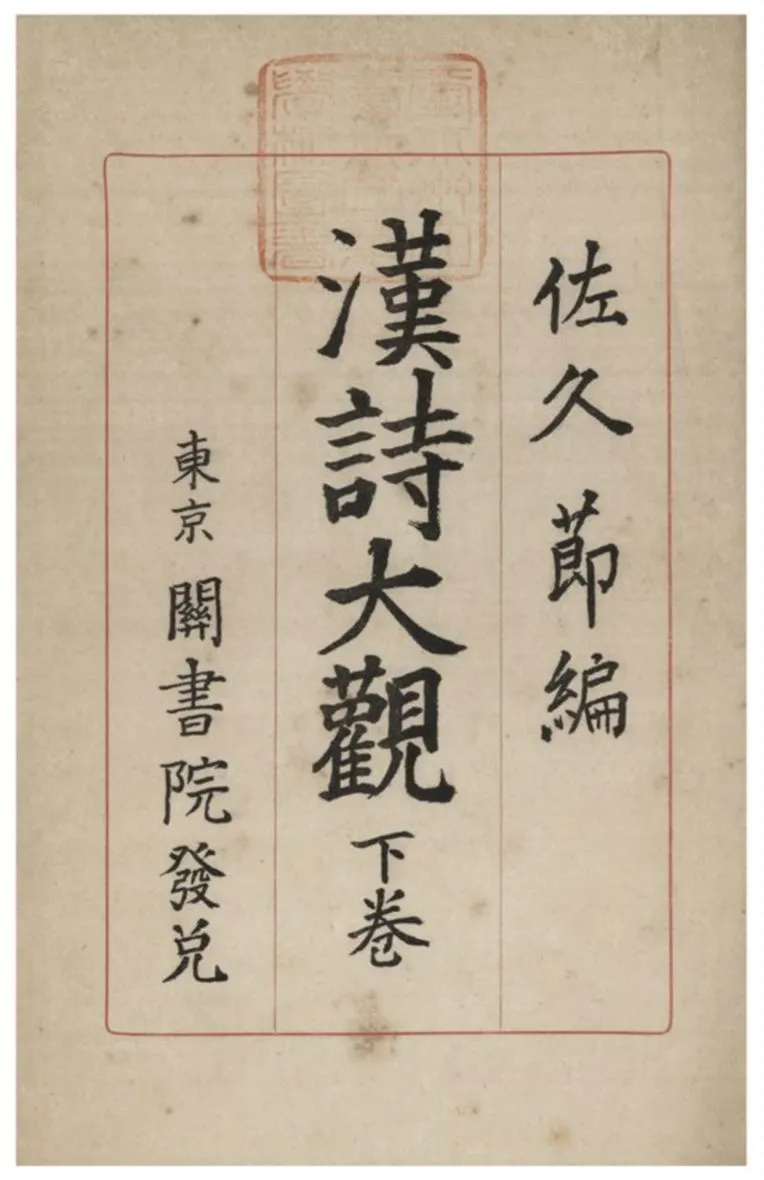 佐久節編
漢詩大觀 下卷
東京 關書院發兌